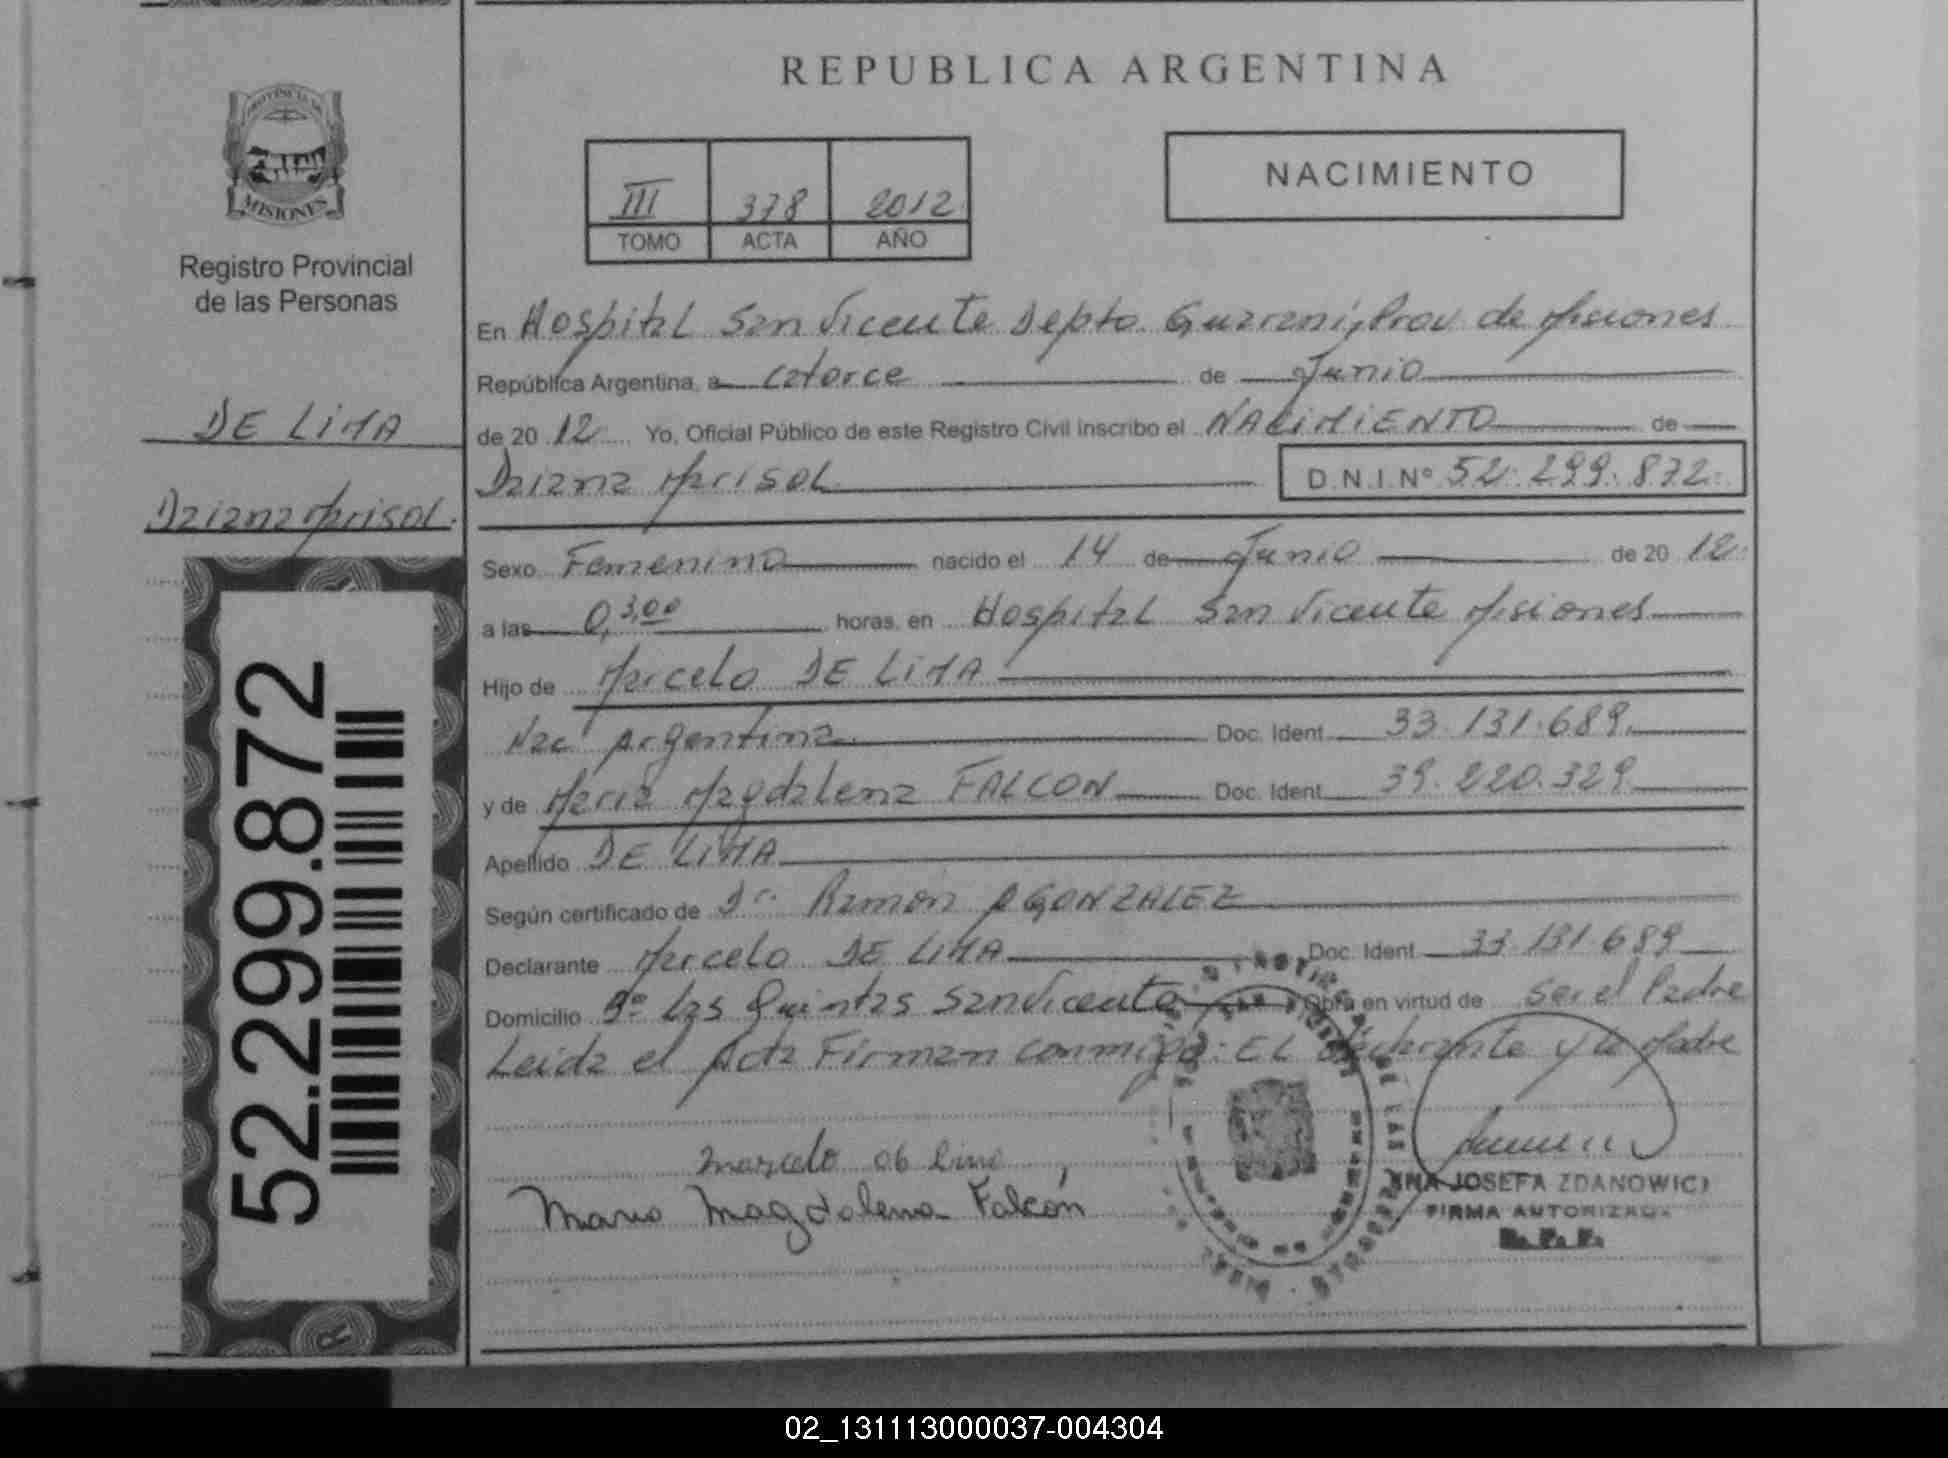 REPUBLICA ARGENTINA
PROVINCIA DE
MISIONES
Registro Provincial
de las Personas
III 378 2012
TOMO ACTA AÑO
NACIMIENTO
DE LIMA
Daiana Marisol
52.299.872
En Hospital San Vicente Depto. Guarani, Prov. de Misiones
República Argentina, a catorce de Junio
de 20 12 Yo, Oficial Público de este Registro Civil inscribo el NACIMIENTO de
Daiana Marisol D.N.I.Nº 52.299.872
Sexo Femenino nacido el 14 de Junio de 20 12
a las 0,3,00 horas, en Hospital San Vicente Misiones
Hijo de Marcelo DE LIMA
Nac Argentina Doc. Ident 33.131.689
y de Maria Magdalena FALCON Doc. Ident 39.220.329
Apellido DE LIMA
Según certificado de Dr. Ramon A GONZALEZ
Declarante Marcelo DE LIMA Doc. Ident 33.131.689
Domicilio Bº Las Quintas San Vicente Obra en virtud de ser el Padre
Leida el Acta Firman conmigo: EL declarante y la Madre
Maria Magdalena Falcón
ANA JOSEFA ZDANOWICZ
FIRMA AUTORIZADA
R. P. P.
02_131113000037-004304